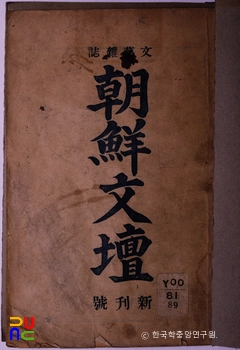 文藝雜誌
朝鮮文壇
新刊號
Y00
81
89
© 한국학중앙연구원.